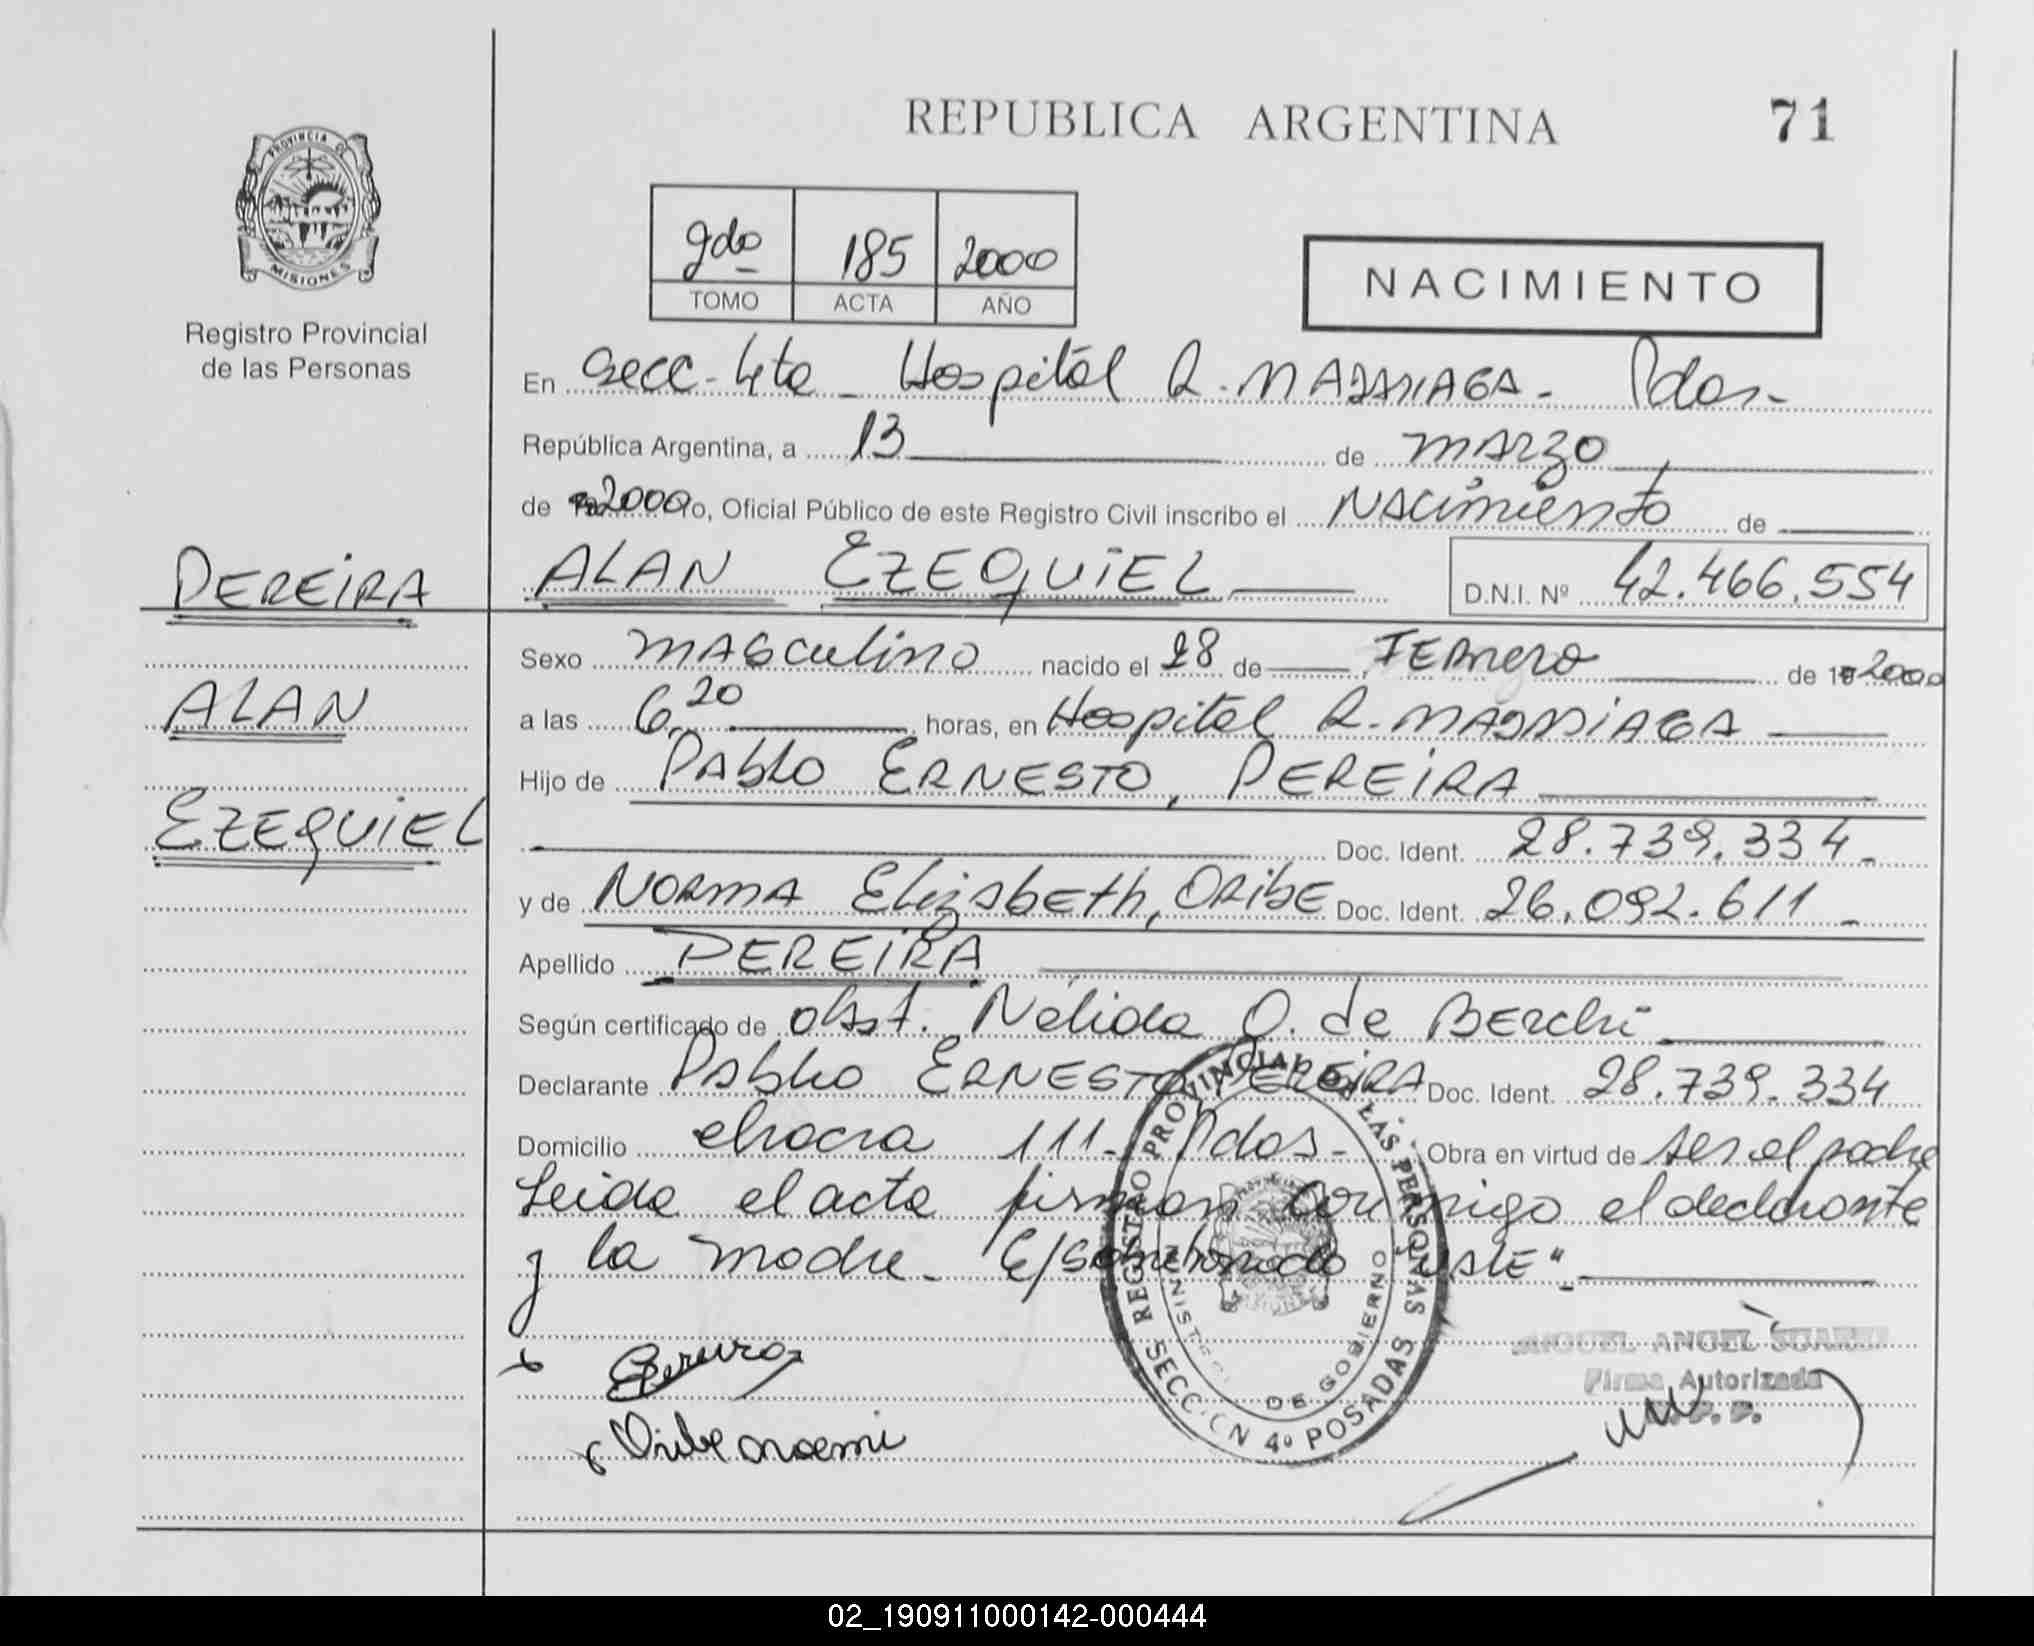 REPUBLICA ARGENTINA
71
PROVINCIA DE
MISIONES
Registro Provincial
de las Personas
2do 185 2000
TOMO ACTA AÑO
NACIMIENTO
En Secc. 4ta Hospital R. MADARIAGA - Pdas.-
República Argentina, a 13 de MARZO
de 2000 yo, Oficial Público de este Registro Civil inscribo el NACimiento de
PEREiRA
ALAN EZEQUiEL
D.N.I. Nº 42.466.554
ALAN
EZEQUiEL
Sexo MASculino nacido el 28 de FEBrero de 2000
a las 6,20 horas, en Hospital R. MADARIAGA
Hijo de PAblo ERNESTO, PEREiRA
Doc. Ident. 28.739.334-
y de NORMA ElizAbETh, ORibE Doc. Ident. 26.092.611-
Apellido PEREiRA
Según certificado de obst. Nélida O. de BErchi
Declarante PAblo ERNESTO PEREiRA Doc. Ident. 28.739.334
Domicilio chacra 111- Pdas- Obra en virtud de ser el padre
Leida el acta firman conmigo el declarante
y la madre. E/sobreborrado "VALE".
REGISTRO PROVINCIAL DE LAS PERSONAS
SECCION 4º POSADAS
MINISTERIO DE GOBIERNO
MIGUEL ANGEL SUAREZ
Firma Autorizada
Pereira
Oribe noemi
02_190911000142-000444